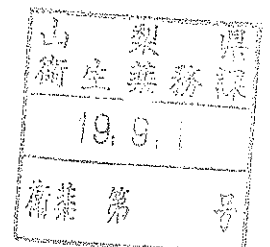 山梨県
衛生薬務課
19.9.1
衛薬 第 号